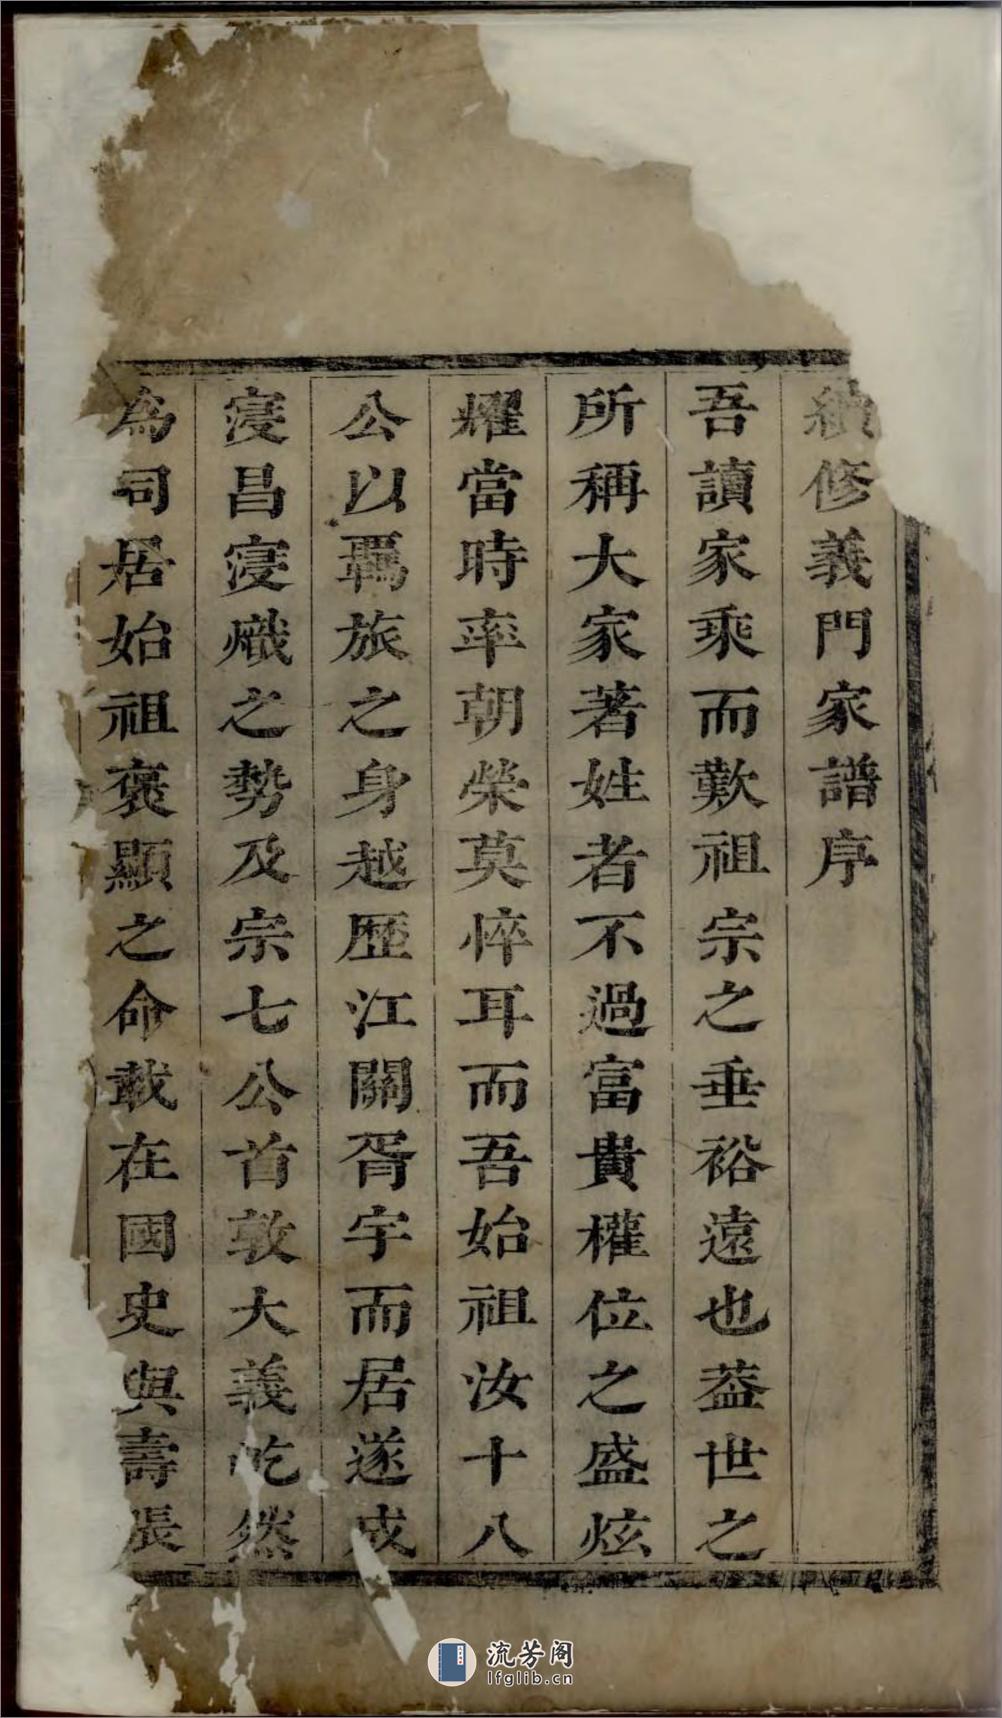 續修義門家譜序
吾讀家乘而歎祖宗之垂裕遠也葢世之
所稱大家著姓者不過富貴權位之盛炫
燿當時率朝榮莫悴耳而吾始祖汝十八
公以羈旅之身越歷江關胥宇而居遂成
寖昌寖熾之勢及宗七公首敦大義屹然
為司居始祖褒顯之命載在國史與壽張
流芳阁
lfglib.cn